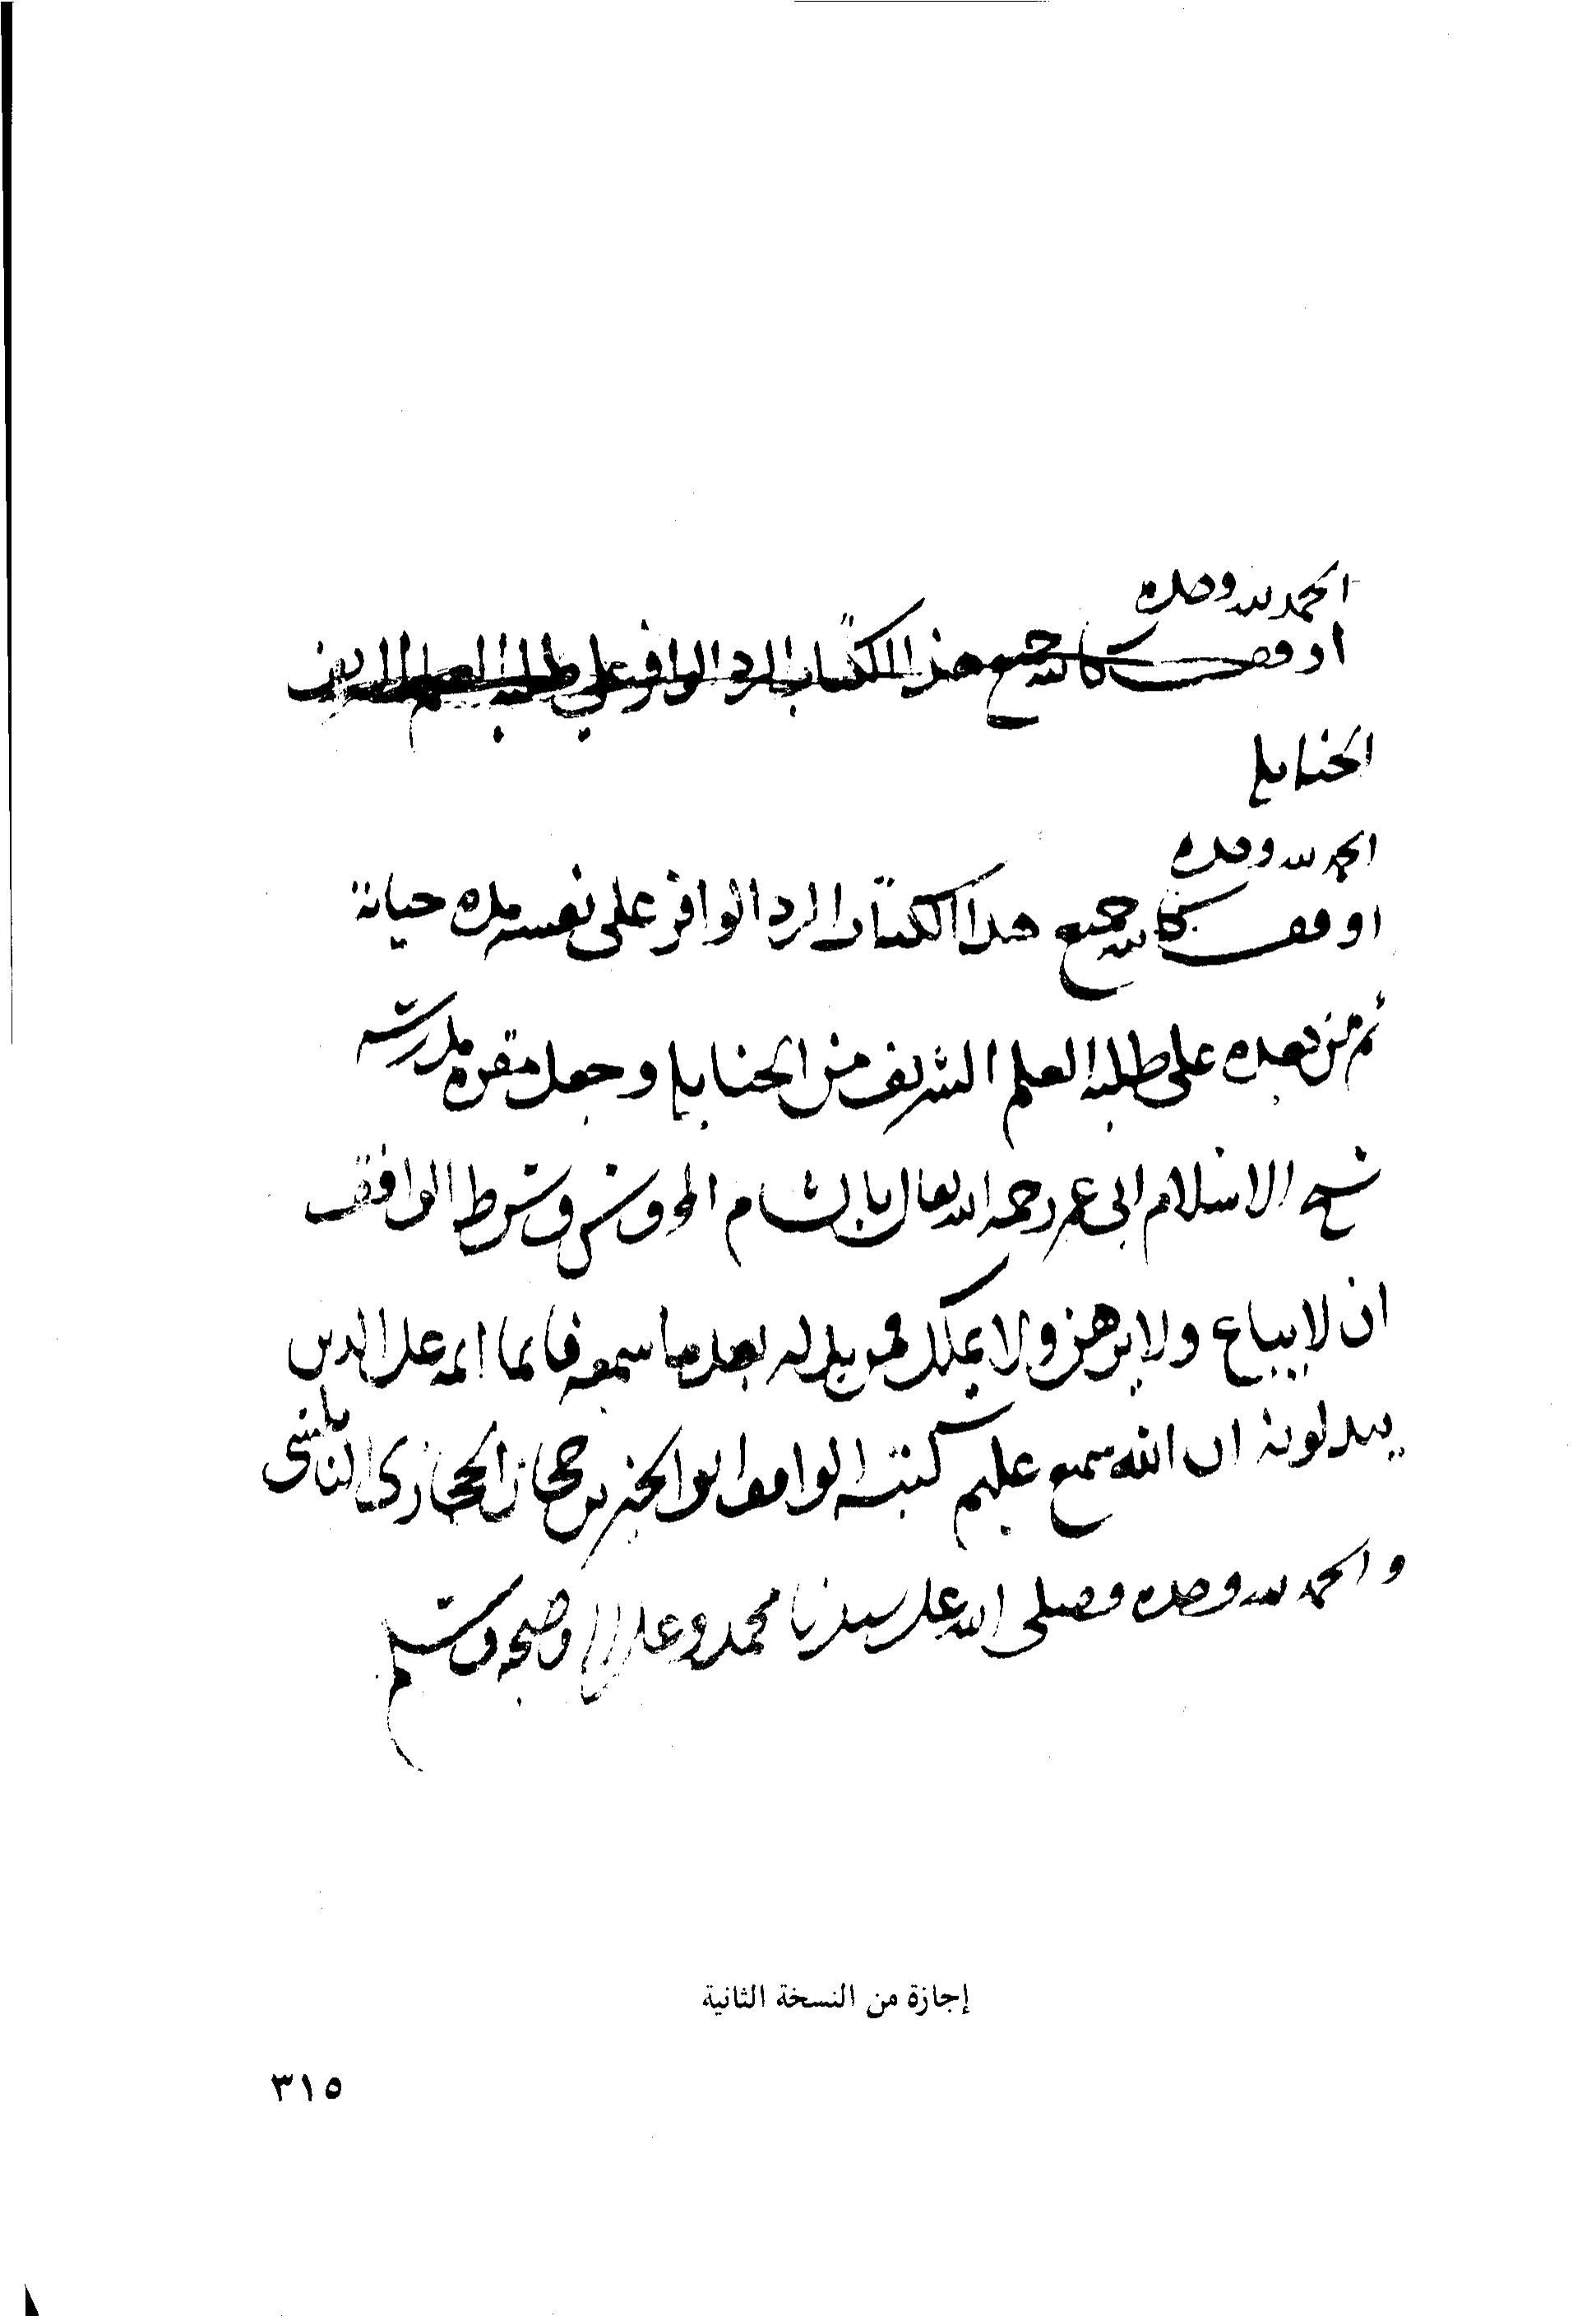 الحمد لله وحده
اوقف كاتبه جميع هذا الكتاب الرد الوافر على طلبة العلم الشريف
الحنابلة
الحمد لله وحده
اوقف كاتبه جميع هذا الكتاب الرد الوافر على نفسه مدة حياته
ثم من بعده على طلبة العلم الشريف من الحنابلة وجعل مقره مدرسة
شيخ الاسلام ابى عمر رحمه الله تعالى بالشام المحروس وشرط الواقف
ان لا يباع ولا يرهن ولا يملك فمن بدله بعد ما سمعه فانما اثمه على الذين
يبدلونه ان الله سميع عليم كتبه الواقف ابو الخير بن حجازى النابلسى
والحمد لله وحده وصلى الله على سيدنا محمد وعلى اله وصحبه وسلم
إجازة من النسخة الثانية
٣١٥